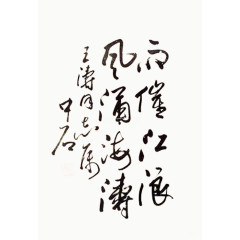 雨催江浪
风涌海涛
王涛同志属
中石